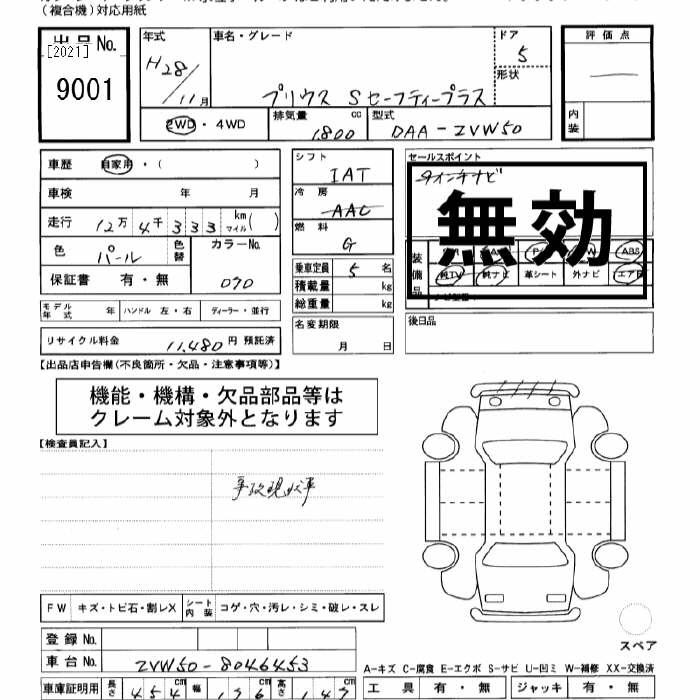 (複合機)対応用紙
出品 No.
[2021]
9001
年式 H28/11月
車名・グレード プリウス Sセーフティープラス
ドア 5
形状
評価点
内装
2WD・4WD
排気量 1800 cc
型式 DAA-ZVW50
車歴 自家用・( )
車検 年 月
走行 12万4千333 km マイル ( )
色 パール
色替
カラーNo. 070
保証書 有・無
モデル年式 年
ハンドル 左・右
ディーラー・並行
リサイクル料金 11,480円 預託済
シフト IAT
冷房 AAC
燃料 G
乗車定員 5 名
積載量 kg
総重量 kg
名変期限
月 日
セールスポイント
9インチナビ
無効
装備品
ABS
純TV 純ナビ 革シート 外ナビ エアB
後日品
【出品店申告欄(不良箇所・欠品・注意事項等)】
機能・機構・欠品部品等は
クレーム対象外となります
【検査員記入】
事故現状車
FW キズ・トビ石・割レX
シート内装 コゲ・穴・汚レ・シミ・破レ・スレ
登録 No.
車台 No. ZVW50-8046453
車庫証明用 長さ 454 cm 幅 176 cm 高さ 147 cm
スペア
A-キズ C-腐食 E-エクボ S-サビ U-凹ミ W-補修 XX-交換済
工具 有・無 ジャッキ 有・無